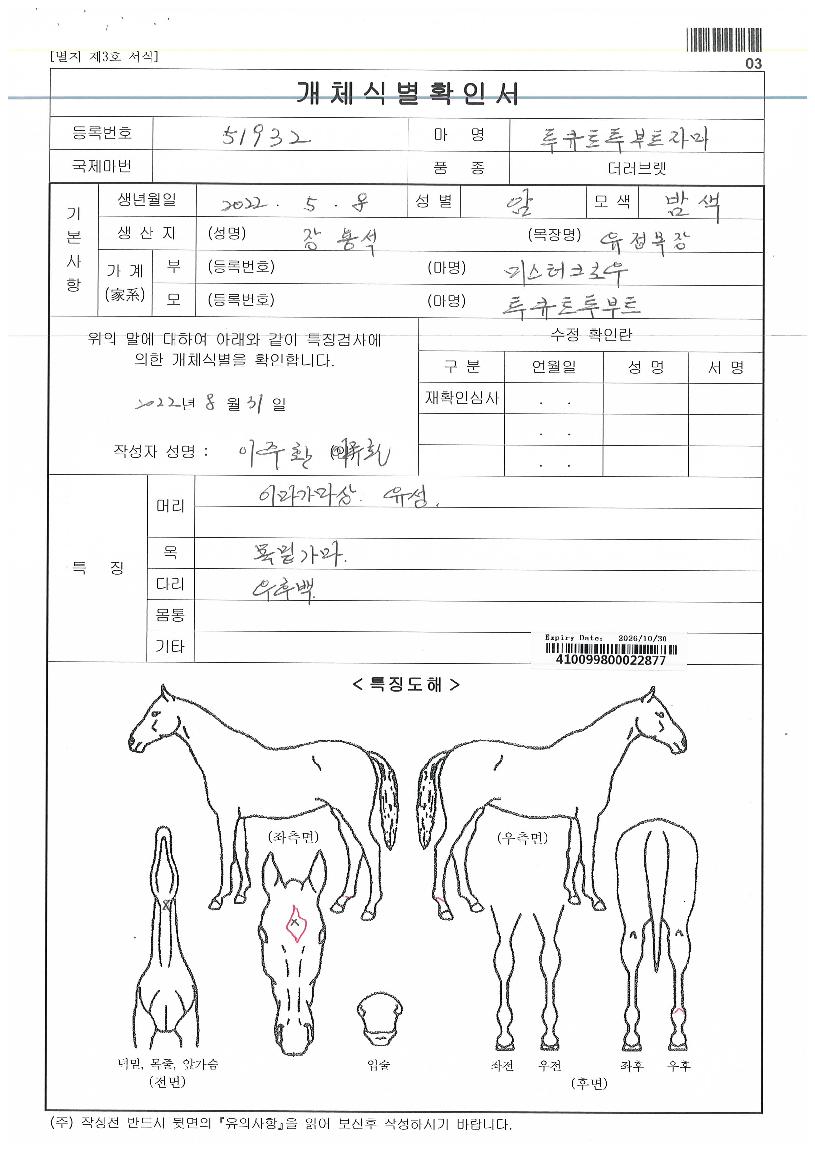 [별지 제3호 서식]
03
개체식별확인서
등록번호 51932 마 명 투큐토투부트자마
국제마번 품 종 더러브렛
기본사항
생년월일 2022 . 5 . 8 성 별 암 모 색 밤색
생 산 지 (성명) 장봉석 (목장명) 유접목장
가 계 (家系) 부 (등록번호) (마명) 미스터크로우
모 (등록번호) (마명) 투큐토투부트
위의 말에 대하여 아래와 같이 특징검사에
의한 개체식별을 확인합니다.
2022년 8 월 31 일
작성자 성명 : 이주환
수정 확인란
구 분 연월일 성 명 서 명
재확인심사 . .
. .
. .
특 징
머리 이마가마상. 유성.
목 목밑가마.
다리 우후백
몸통
기타
Expiry Date: 2026/10/30
410099800022877
< 특징도해 >
(좌측면) (우측면)
너밑, 목줄, 앞가슴
(전면)
입술
좌전 우전 좌후 우후
(후면)
(주) 작성전 반드시 뒷면의 『유의사항』을 읽어 보신후 작성하시기 바랍니다.